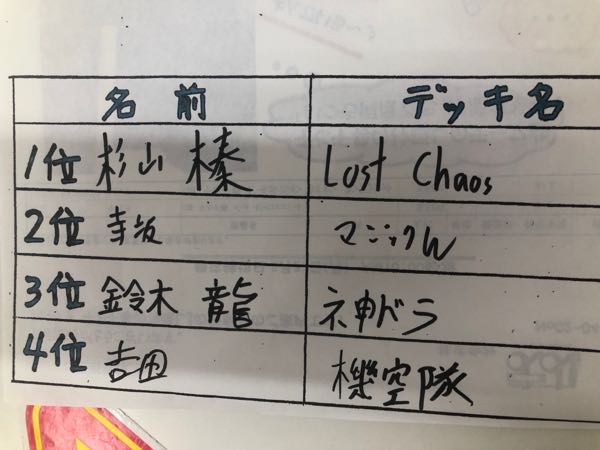 名前 デッキ名
1位 杉山 榛 Lost Chaos
2位 寺坂 マジックW
3位 鈴木 龍 ネ申ドラ
4位 吉田 機空隊